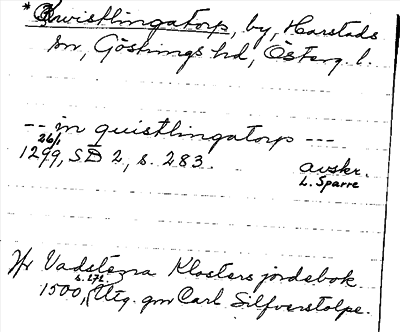 * Qwistlingatorp, by, Harstads
sn, Göstrings hd, Österg. l.
-- in quistlingatorp ---
26/1
1299, SD 2, s. 283. avskr.
L. Sparre
Hr Vadstena Klosters jordebok
s. 272
1500, Utg. gm Carl Silfverstolpe.